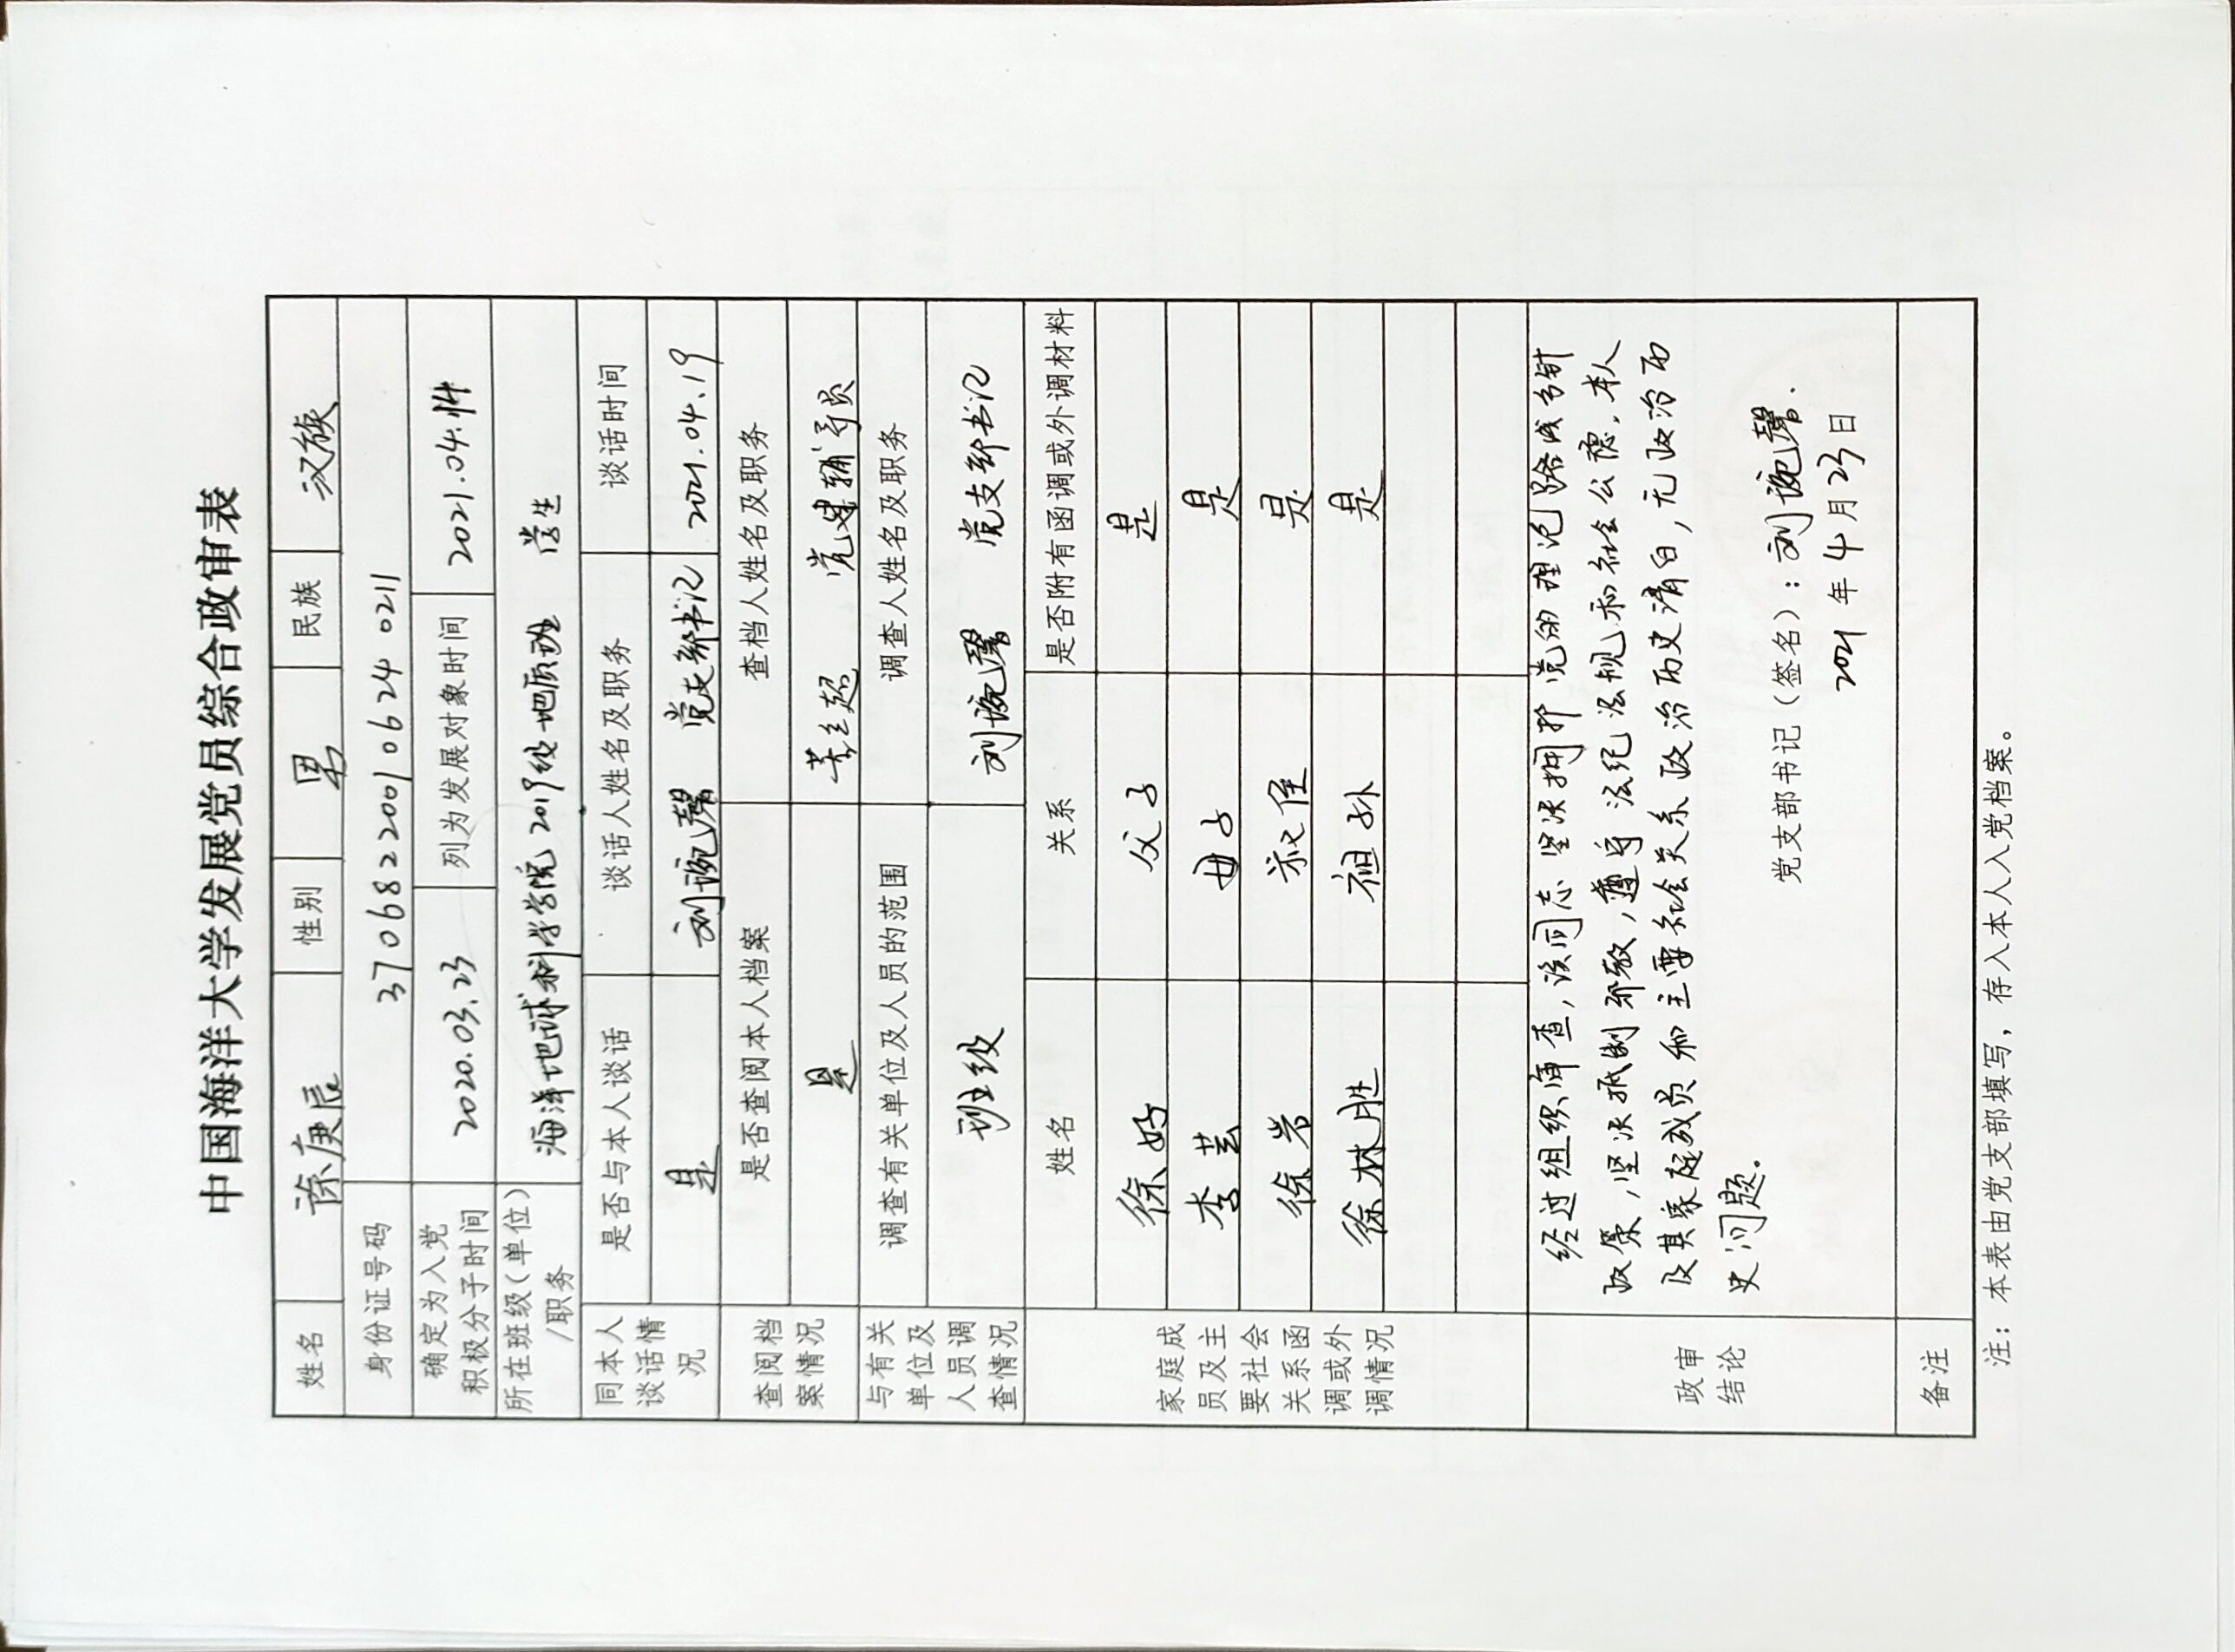 中国海洋大学发展党员综合政审表
姓名 徐庚辰 性别 男 民族 汉族
身份证号码 370682200106240211
确定为入党
积极分子时间 2020.03.23 列为发展对象时间 2021.04.14
所在班级（单位）
/职务 海洋地球科学学院 2019级地质班 学生
同本人
谈话情
况 是否与本人谈话 谈话人姓名及职务 谈话时间
是 刘琬馨 党支部书记 2021.04.19
查阅档
案情况 是否查阅本人档案 查档人姓名及职务
是 党建辅导员
与有关
单位及
人员调
查情况 调查有关单位及人员的范围 调查人姓名及职务
班级 刘琬馨 党支部书记
家庭成
员及主
要社会
关系函
调或外
调情况 姓名 关系 是否附有函调或外调材料
徐好 父子 是
李芸 母子 是
徐岩 叔侄 是
徐林胜 祖孙 是
政审
结论
经过组织审查，该同志坚决拥护党的理论路线方针
政策，坚决抵制邪教，遵守法纪法规和社会公德。本人
及其家庭成员和主要社会关系政治历史清白，无政治历
史问题。
党支部书记（签名）：刘琬馨.
2021年4月23日
备注
注：本表由党支部填写，存入本人入党档案。